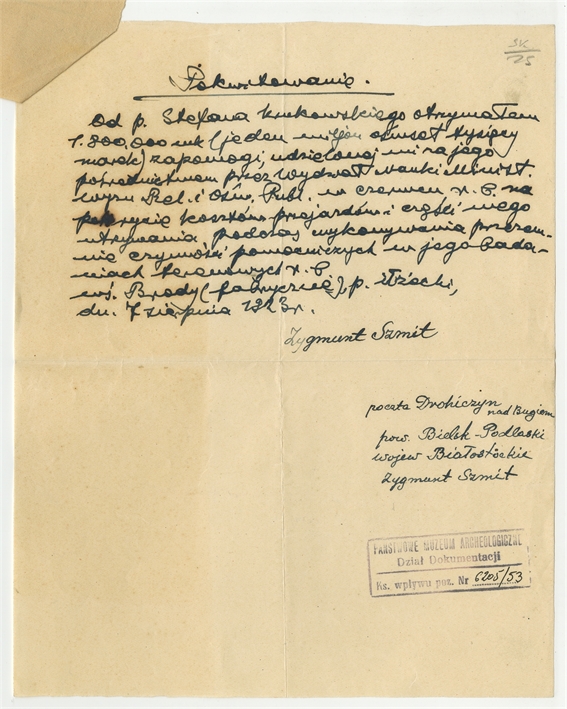 SK/25
Pokwitowanie.
Od p. Stefana Krukowskiego otrzymałem
1.800,000 mk (jeden miljon ośmset tysięcy
marek) zapomogi, udzielonej mi za jego
pośrednictwem przez Wydział Nauki Minist.
Wyzn. Rel. i Ośw. Publ. w czerwcu r. b. na
pokrycie kosztów przejazdów i części mego
utrzymania podczas wykonywania przeze m-
nie czynności pomocniczych w jego bada-
niach terenowych r. b.
wś. Brody (fabryczne), p. iłżecki,
dn. 7 sierpnia 1923 r.
Zygmunt Szmit
poczta Drohiczyn
nad Bugiem
pow. Bielsk-Podlaski
wojew Białostóckie
Zygmunt Szmit
PAŃSTWOWE MUZEUM ARCHEOLOGICZNE
Dział Dokumentacji
Ks. wpływu poz. Nr 6205/53